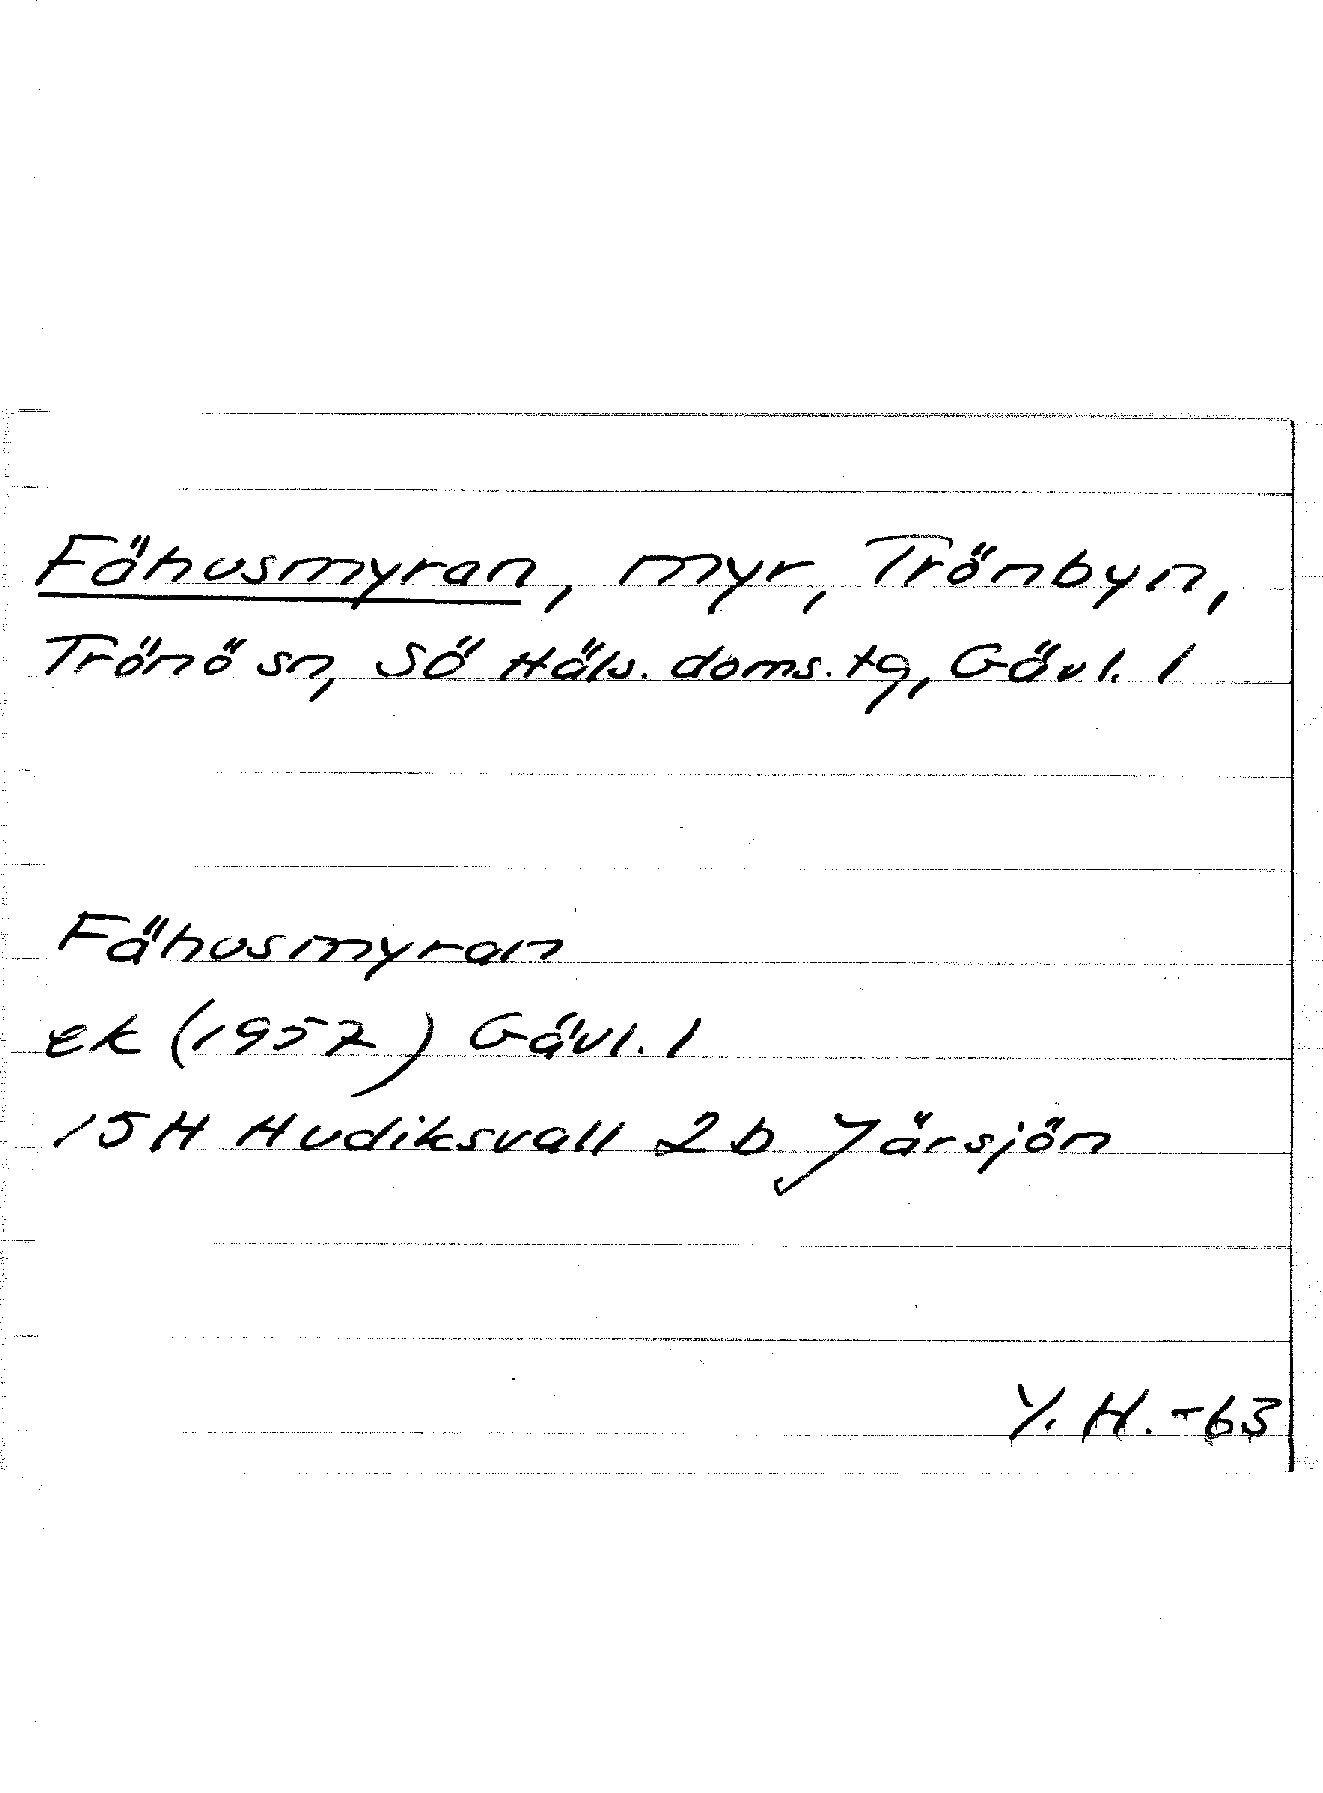 Fähusmyran, myr, Trönbyn,
Trönö sn, Sö Häls. doms. tg, Gävl. l
Fähusmyran
ek (1957) Gävl. l
15H Hudiksvall 2b Järsjön
Y. H. -63